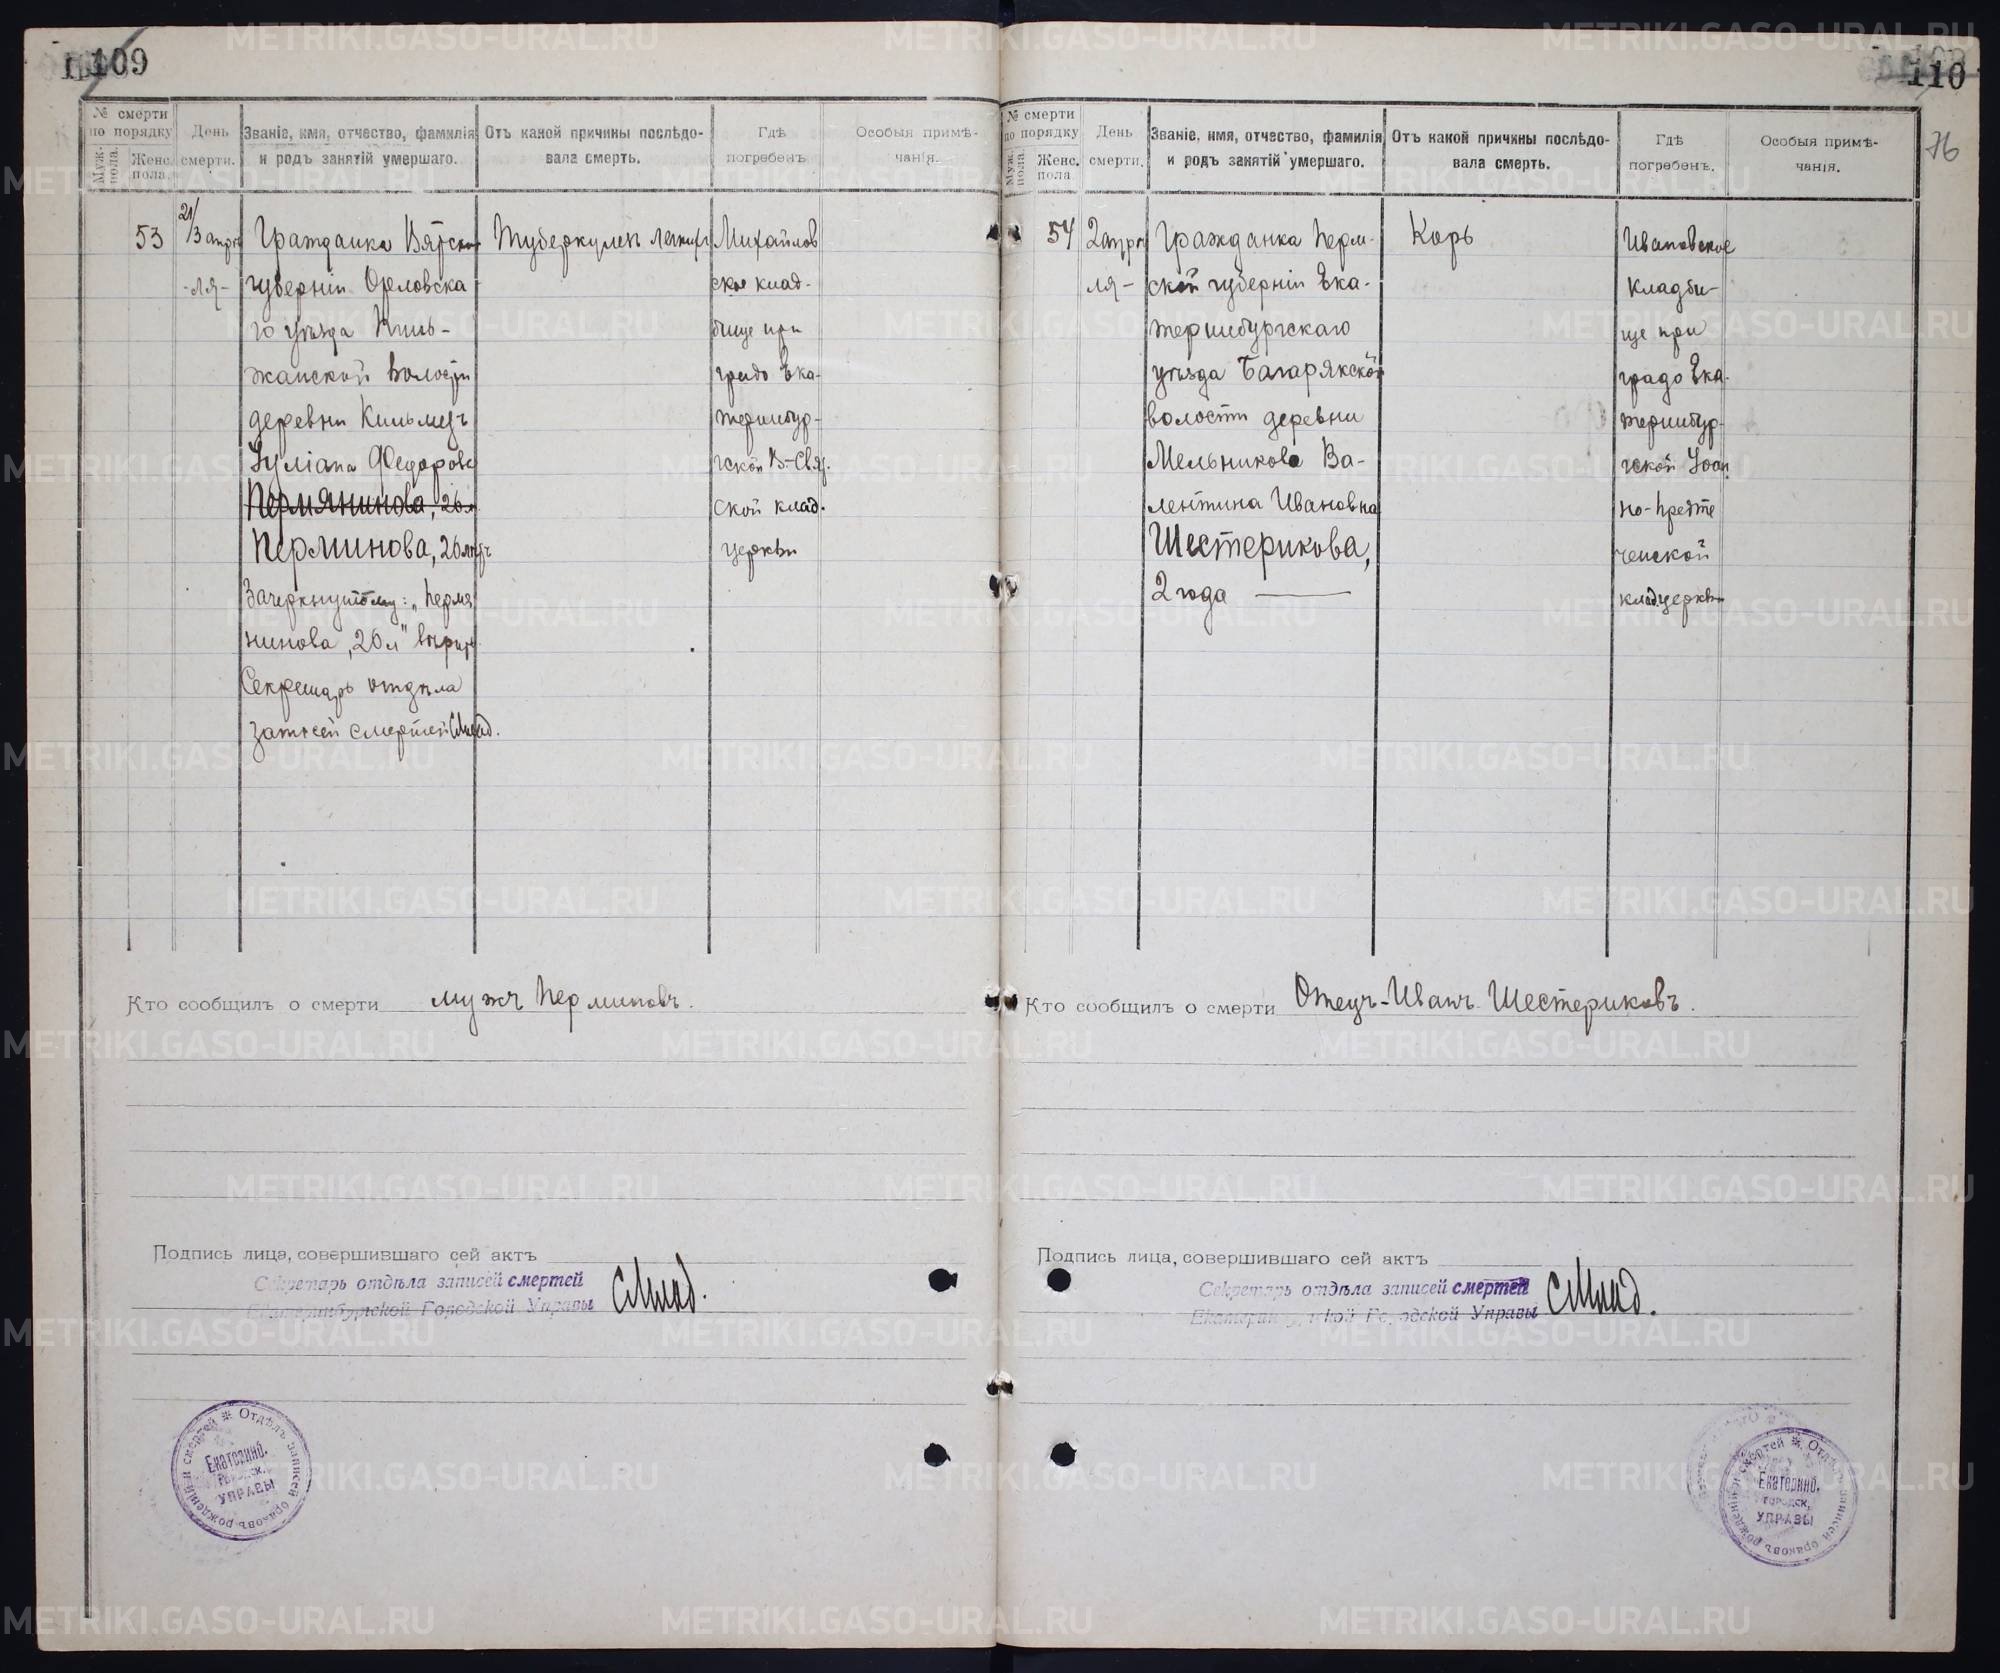 109
№ смерти
по порядку
Муж-
пола.
Женс.
пола.
День
смерти.
Званіе, имя, отчество, фамилія
и родъ занятій умершаго.
Отъ какой причины послѣдо-
вала смерть.
Гдѣ
погребенъ.
Особыя примѣ-
чанія.
53
21/3 апрѣ
-ля-
Гражданка Вятской
губерніи Орловска
го уѣзда
жанской волости
деревни Кильмезь
Іуліана Федоровс
Пермянинова, 26 л
Перминова, 26 лѣтъ
Зачеркнутому: „Пермя
нинова, 26 л" вѣрить
Секретарь отдѣла
записей смертей
Туберкулезъ легкихъ
Михайлов
ское клад-
бище при
градо Ека-
теринбур-
гской В-Свя.
ской клад.
церкви
Кто сообщилъ о смерти мужъ Перминовъ.
Подпись лица, совершившаго сей актъ
Секретарь отдѣла записей смертей
Екатеринбургской Городской Управы
Отдѣлъ записей браковъ рожденій и смертей
Екатеринб.
Городск.
УПРАВЫ
110
76
№ смерти
по порядку
Муж.
пола.
Женс.
пола.
День
смерти.
Званіе, имя, отчество, фамилія
и родъ занятій умершаго.
Отъ какой причины послѣдо-
вала смерть.
Гдѣ
погребенъ.
Особыя примѣ-
чанія.
54
2 апрѣ
ля-
Гражданка Перм-
ской губерніи Ека-
теринбургскаго
уѣзда Багарякской
волости деревни
Мельникова Ва-
лентина Ивановна
Шестерикова,
2 года
Корь
Ивановское
кладби-
ще при
градо Ека-
теринбур-
гской Іоан.
но-Предте
ченской
клад. церкви
Кто сообщилъ о смерти Отецъ-Иванъ Шестериковъ.
Подпись лица, совершившаго сей актъ
Секретарь отдѣла записей смертей
Екатеринбургской Городской Управы
Отдѣлъ записей браковъ рожденій и смертей
Екатеринб.
Городск.
УПРАВЫ
METRIKI.GASO-URAL.RU